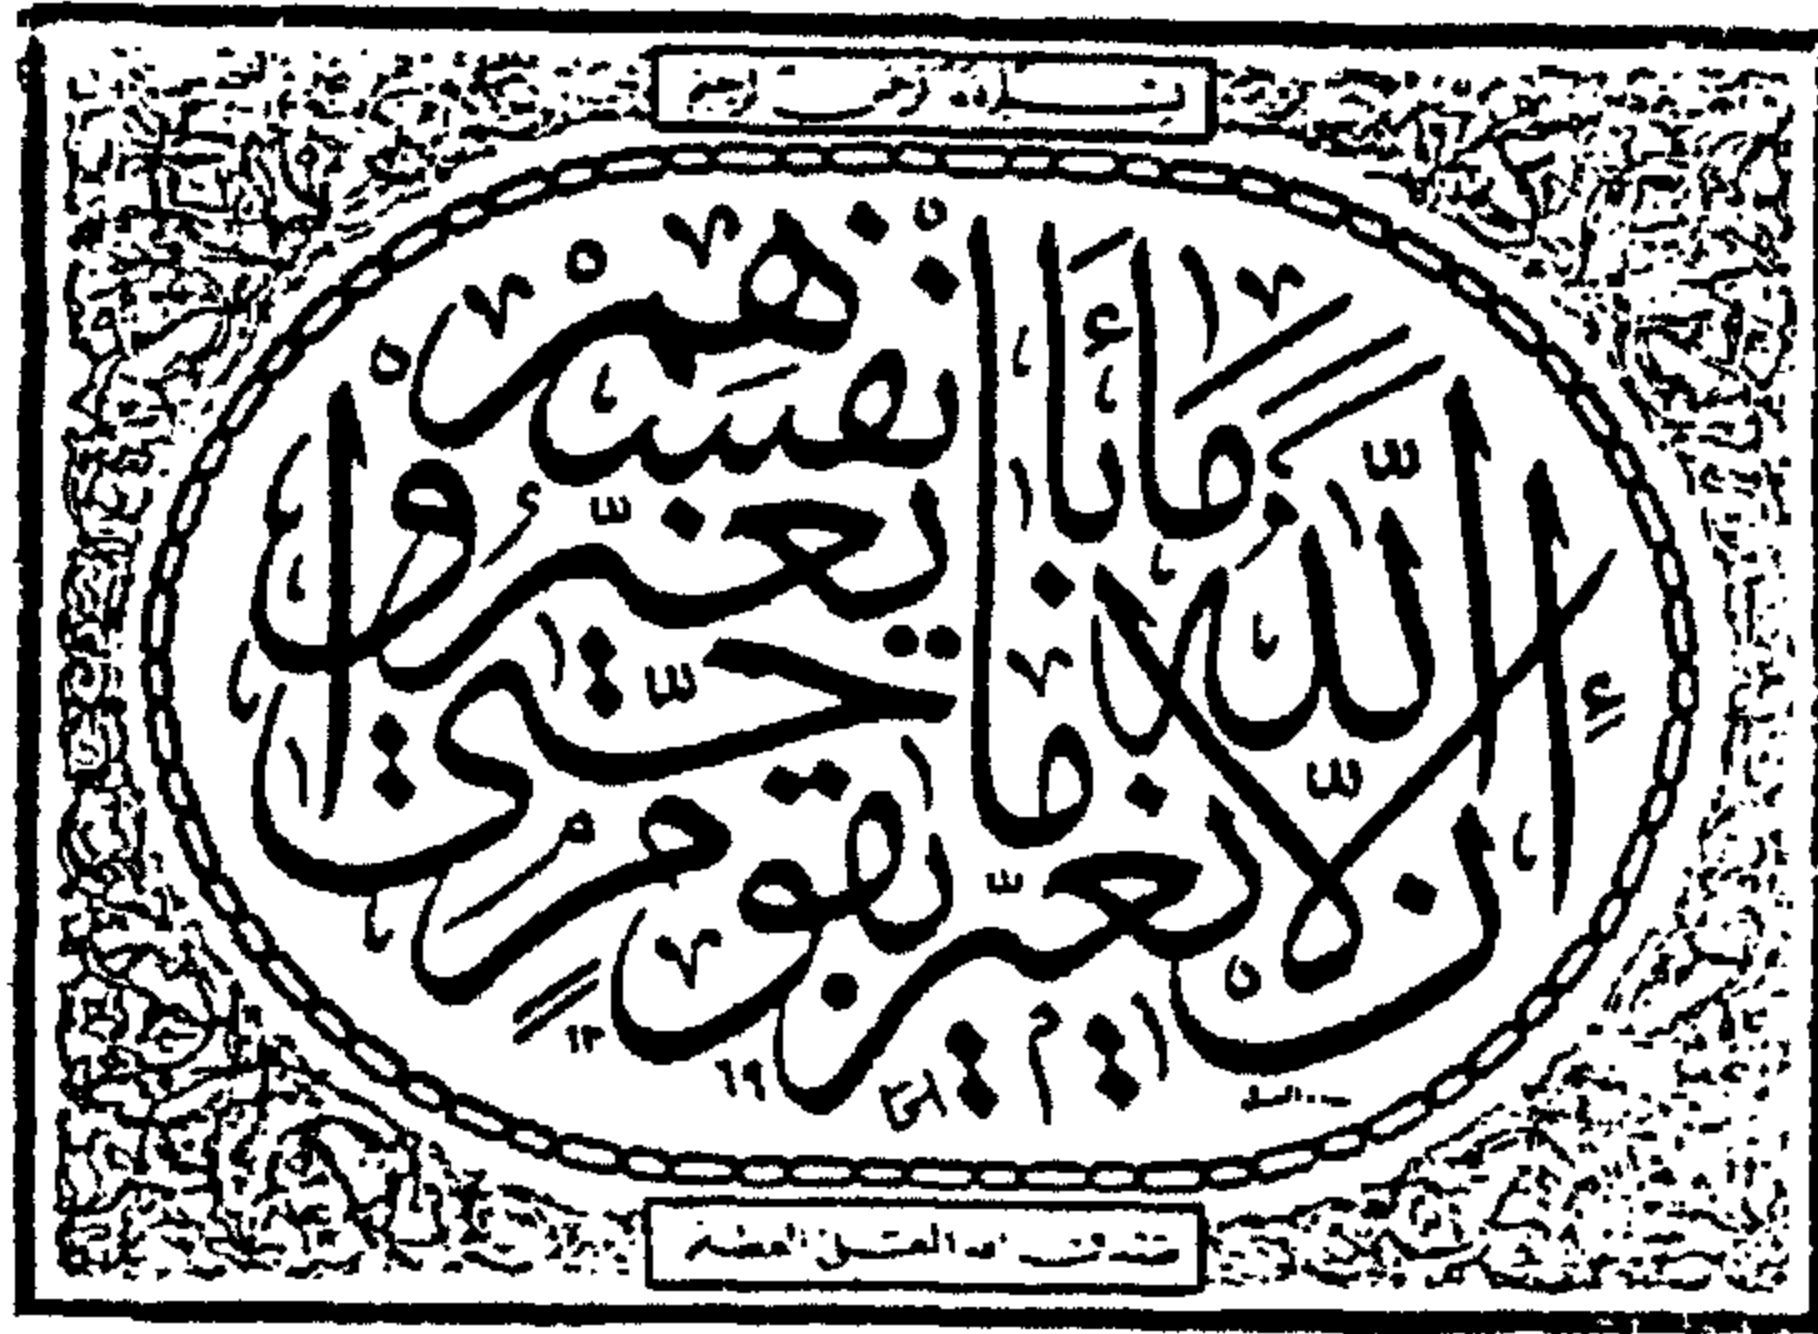 بسم الله الرحمن الرحيم
إِنَّ اللّٰهَ لَا يُغَيِّرُ مَا بِقَوْمٍ حَتّٰى يُغَيِّرُوا مَا بِأَنْفُسِهِمْ
صدق الله العلي العظيم